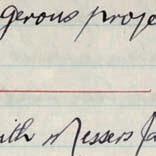 gerous proje
ith Messers J